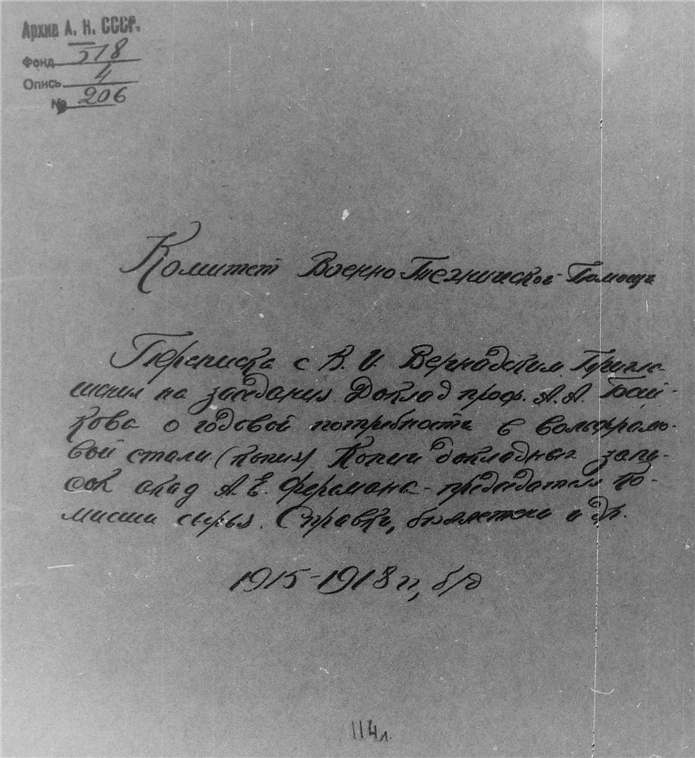 Архив А. Н. СССР.
Фонд 518
Опись 4
№ 206
Комитет Военно-Технической Помощи
Переписка с В. И. Вернадским. Пригла-
шения на заседания. Доклад проф. А. А. Бай-
кова о годовой потребности в вольфрамо-
вой стали (копия) Копии докладных запи-
сок акад. А. Е. Ферсмана - председателя Ко-
миссии сырья. Справки, бюллетени и др.
1915-1918 гг, б/д
114 л.